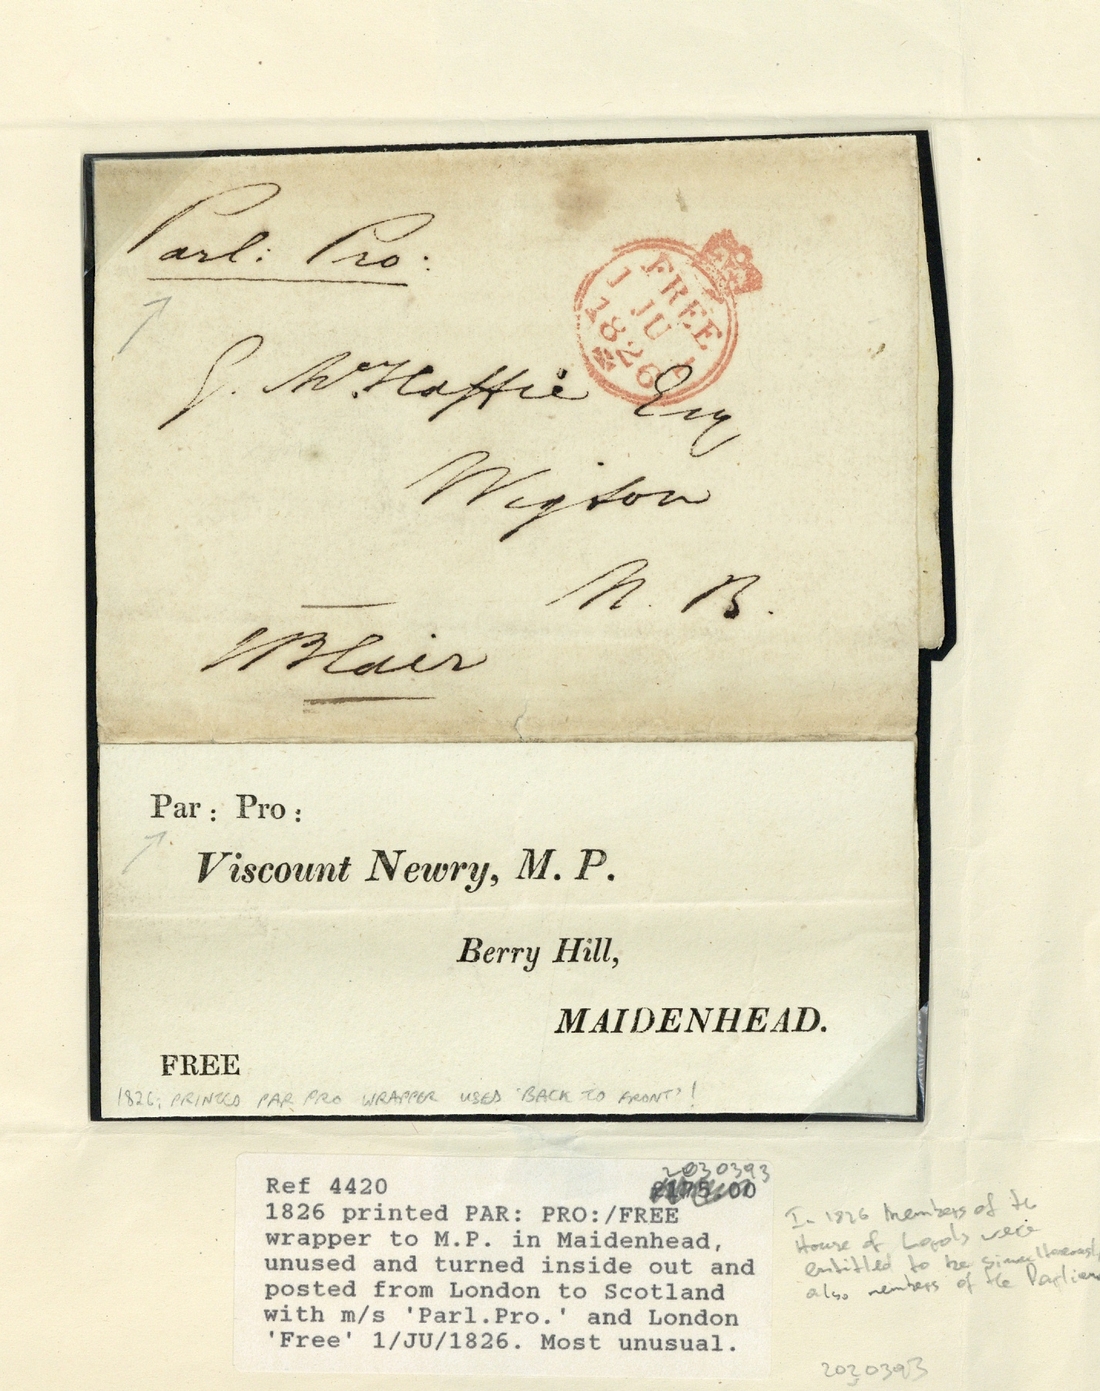 Parl: Pro:
FREE
1 JU 1
1826
G. McHaffie Esq
Wigton
N. B.
Blair
Par: Pro:
Viscount Newry, M. P.
Berry Hill,
MAIDENHEAD.
FREE
1826, PRINTED PAR PRO WRAPPER USED 'BACK TO FRONT'!
2030393
Ref 4420
1826 printed PAR: PRO:/FREE
wrapper to M.P. in Maidenhead,
unused and turned inside out and
posted from London to Scotland
with m/s 'Parl.Pro.' and London
'Free' 1/JU/1826. Most unusual.
In 1826 Members of the
House of Lords were
entitled to be simultaneously
also members of the
2030393